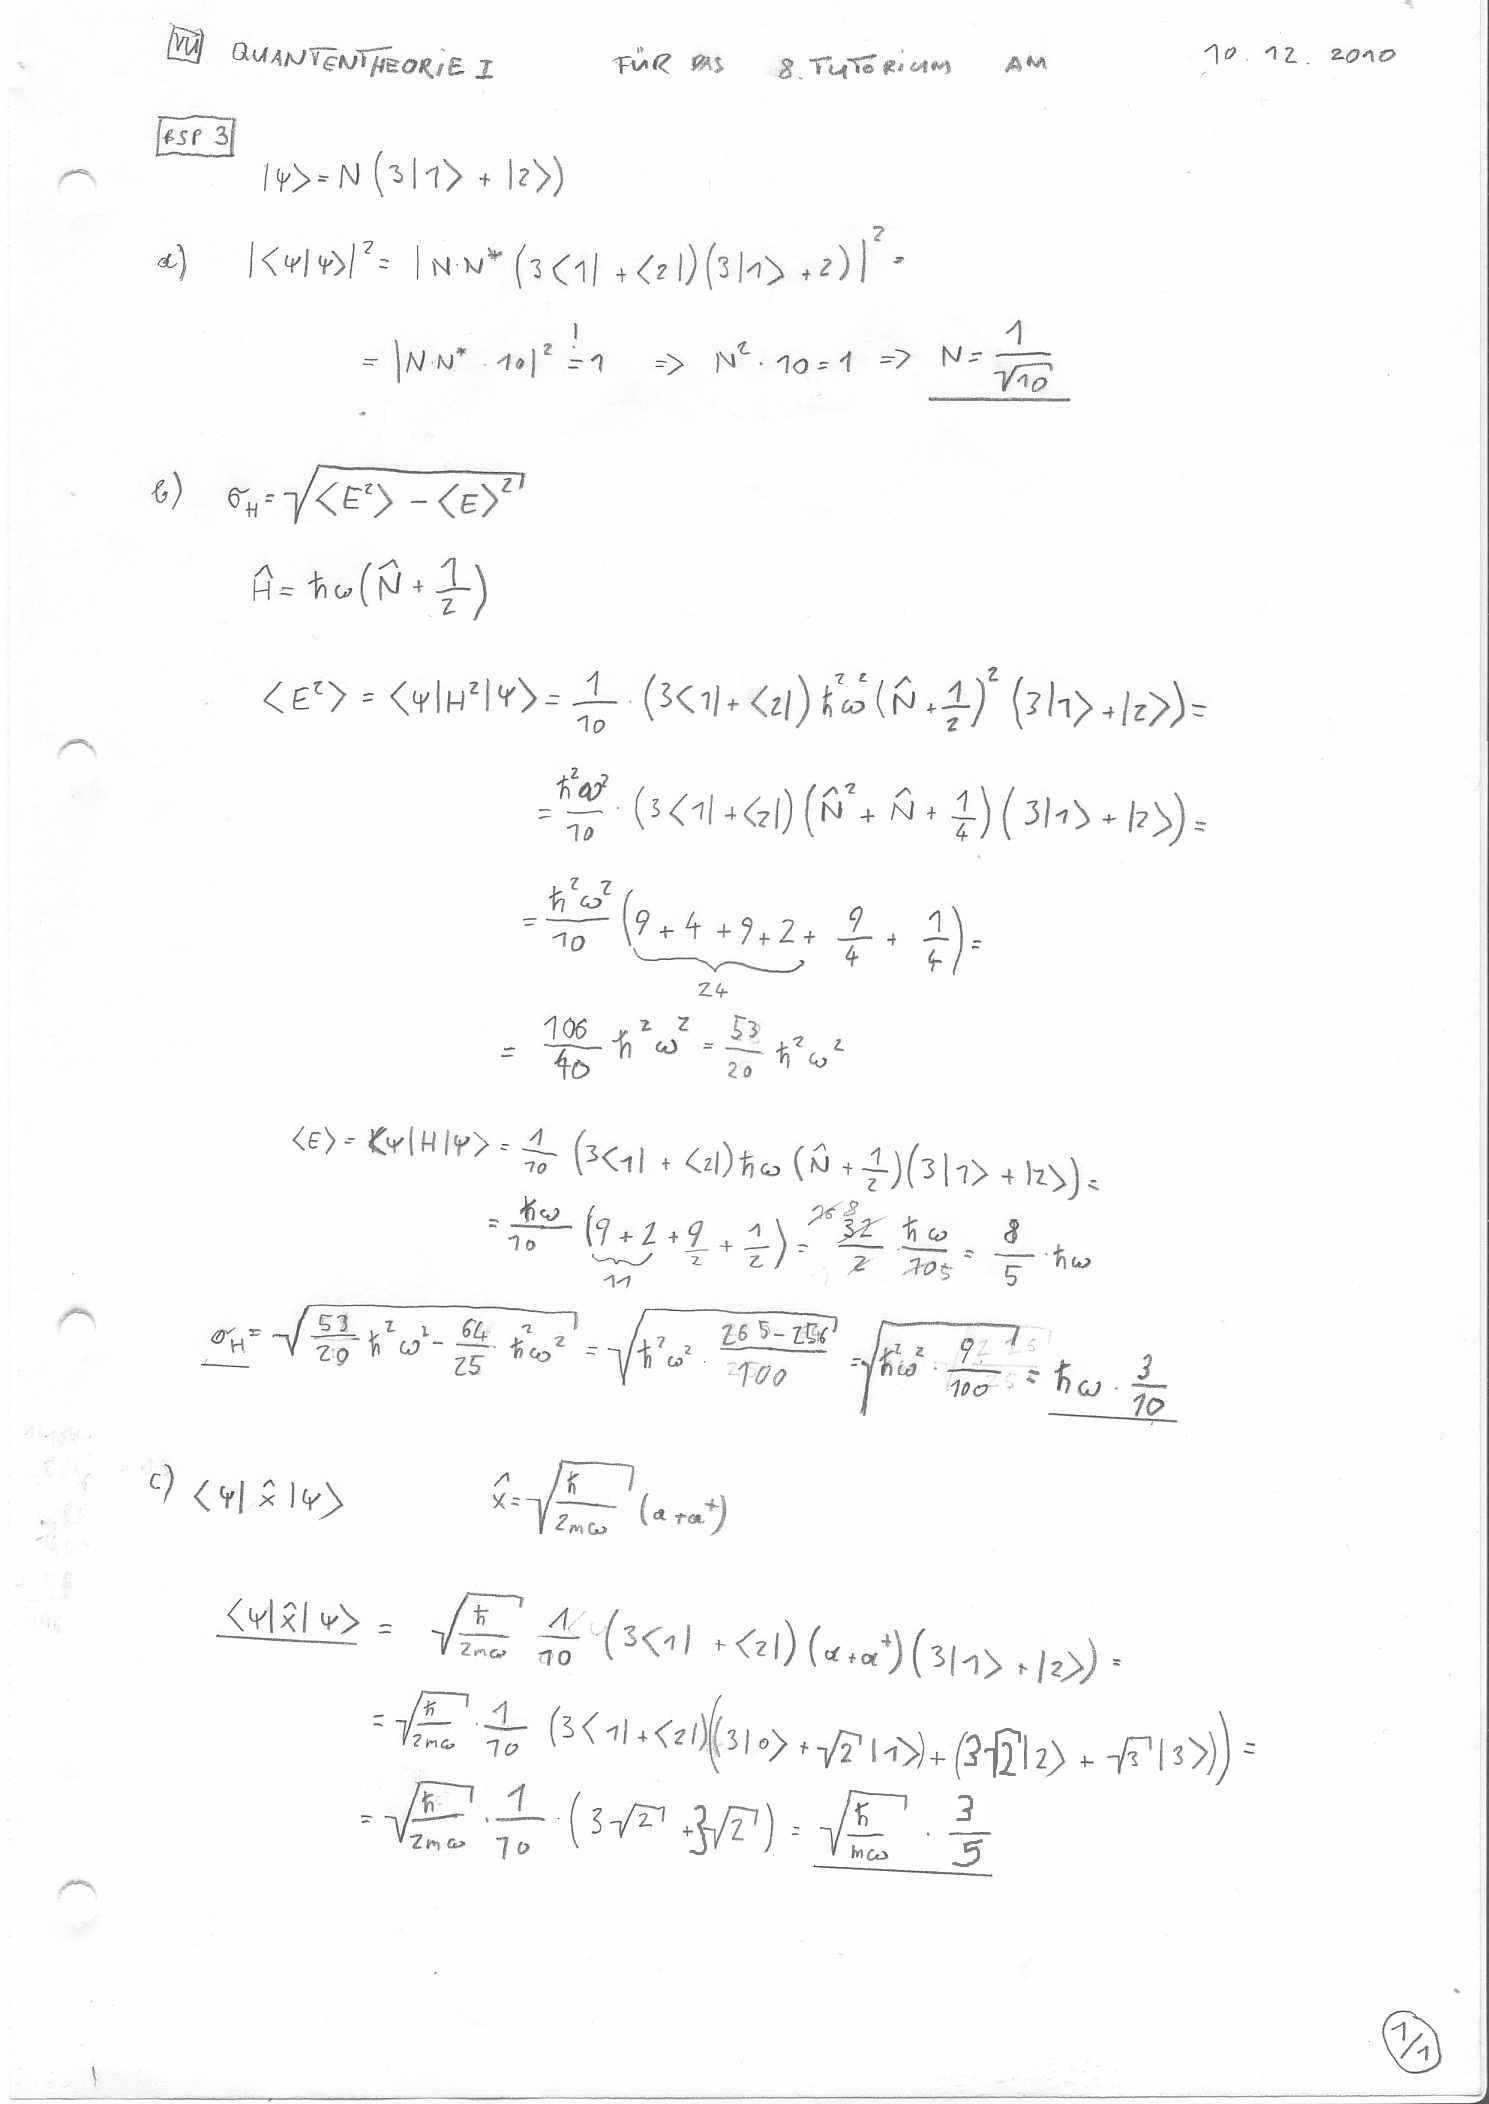 VU QUANTENTHEORIE I FÜR DAS 8. TUTORIUM AM 10.12.2010
BSP 3
|ψ> = N (3|1> + |2>)
a) |<ψ|ψ>|² = |N·N* (3<1| + <2|)(3|1> + 2)|² =
= |N·N* · 10|² =! 1 => N² · 10 = 1 => N = 1/√10
b) σ_H = √(<E²> - <E>²)
Ĥ = ħω(N̂ + 1/2)
<E²> = <ψ|H²|ψ> = 1/10 · (3<1| + <2|) ħ²ω² (N̂ + 1/2)² (3|1> + |2>) =
= ħ²ω²/10 · (3<1| + <2|)(N̂² + N̂ + 1/4)(3|1> + |2>) =
= ħ²ω²/10 (9 + 4 + 9 + 2 + 9/4 + 1/4) =
24
= 106/40 ħ²ω² = 53/20 ħ²ω²
<E> = <ψ|H|ψ> = 1/10 (3<1| + <2|) ħω (N̂ + 1/2)(3|1> + |2>) =
= ħω/10 (9 + 2 + 9/2 + 1/2) = 32/2 · ħω/10 5 = 8/5 · ħω
16 8
11
σ_H = √(53/20 ħ²ω² - 64/25 · ħ²ω²) = √(ħ²ω² · (265-256)/100) = √(ħ²ω² · 9/100) = ħω · 3/10
c) <ψ|x̂|ψ> x̂ = √(ħ/2mω) (a + a⁺)
<ψ|x̂|ψ> = √(ħ/2mω) 1/10 (3<1| + <2|)(a + a⁺)(3|1> + |2>) =
= √(ħ/2mω) · 1/10 (3<1| + <2|)((3|0> + √2|1>) + (3√2|2> + √3|3>)) =
= √(ħ/2mω) · 1/10 · (3√2 + 3√2) = √(ħ/mω) · 3/5
1/1